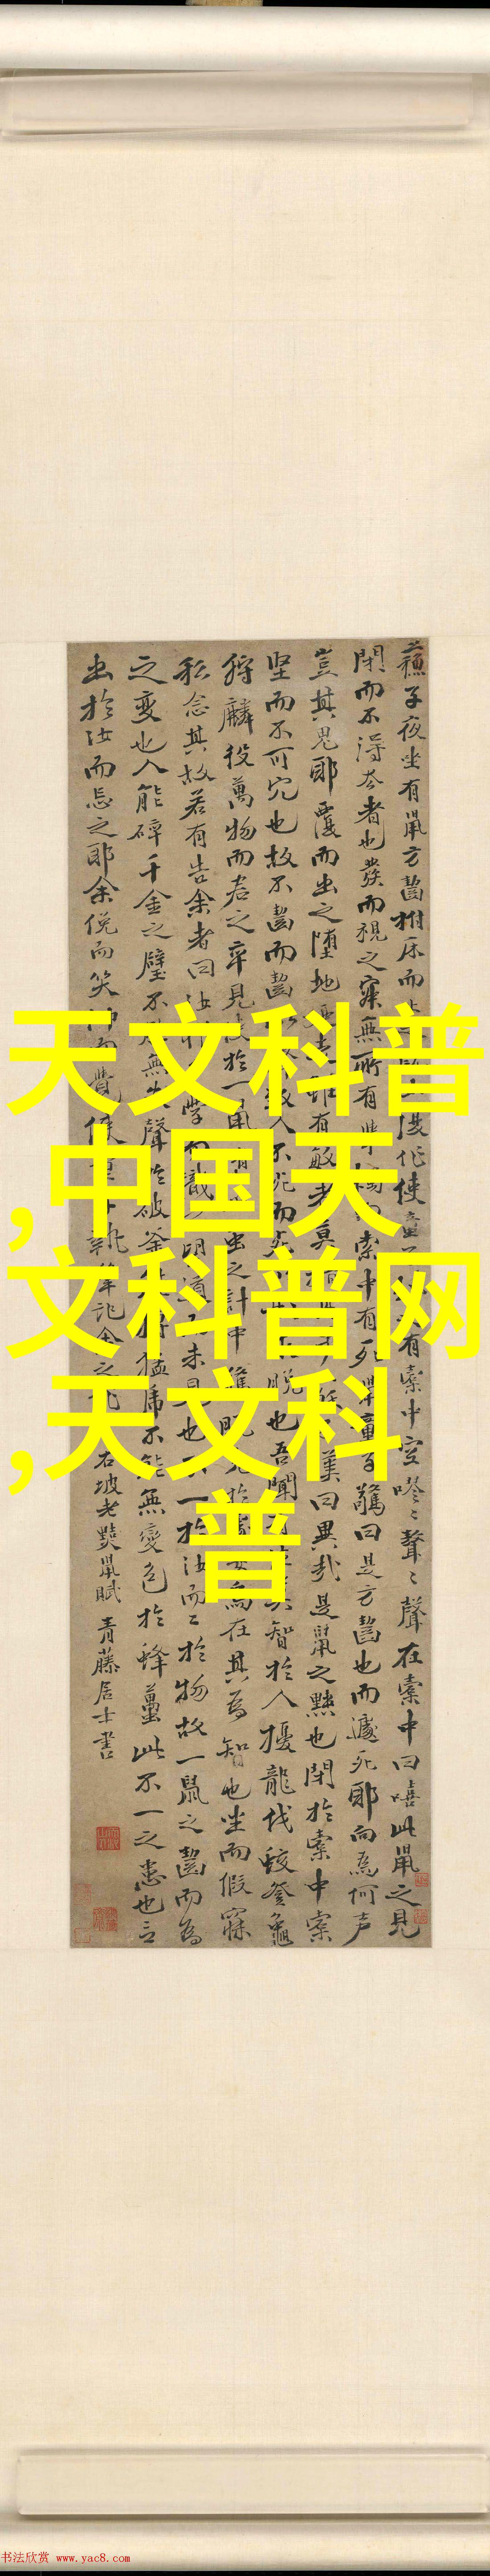 天文科普
,中国天
文科普网
,天文科
普
蘇子夜坐有鼠方齧拊床而復作使童有橐中空嘐〻聱〻聲在橐中曰嘻此鼠之見
閉而不得去者也發而視之寂無所有舉索中有死鼠童子驚曰是方齧也而遽死耶向為何声
豈其鬼耶覆而出之墮地有敏者莫嘆曰異哉是鼠之黠也閉於橐中橐
堅而不可穴也故不齧而齧人不死而脫也吾聞智於人擾龍伐蛟登龜
狩麟役萬物而君之卒見使於一鼠蟲之計中於在其為智也坐而假寐
私念其故若有告余者曰汝學而識未見也一於汝而二於物故一鼠之齧而為
之變也人能碎千金之璧不無失聲於破釜猛虎不能無變色於蜂蠆此不一之患也言
出於汝而忘之耶余俛而笑仰而覺使執筆記余之右坡老黠鼠賦 青藤居士書
书法欣赏 www.yac8.com